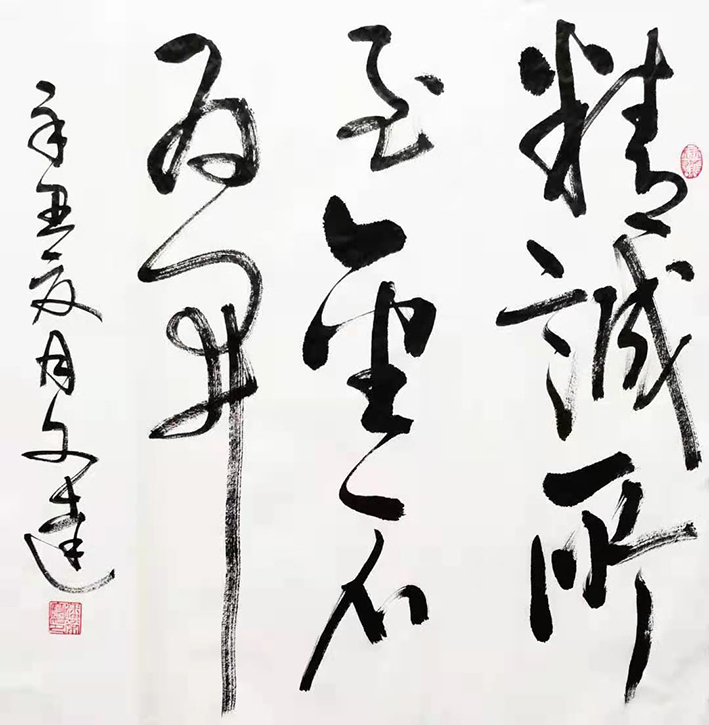 精誠所
至金石
為開
辛丑夏月文達